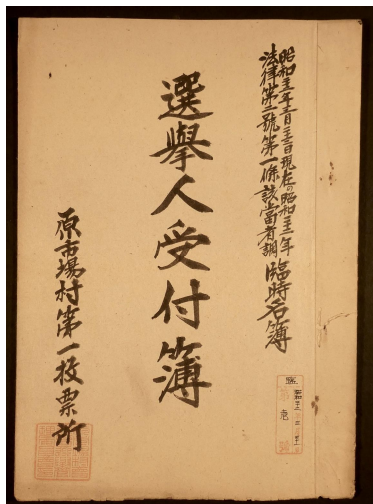 昭和 年 月 日現在の昭和二十二年
法律第二號第一條該當者調
臨時名簿
選擧人受付簿
原市場村第一投票所